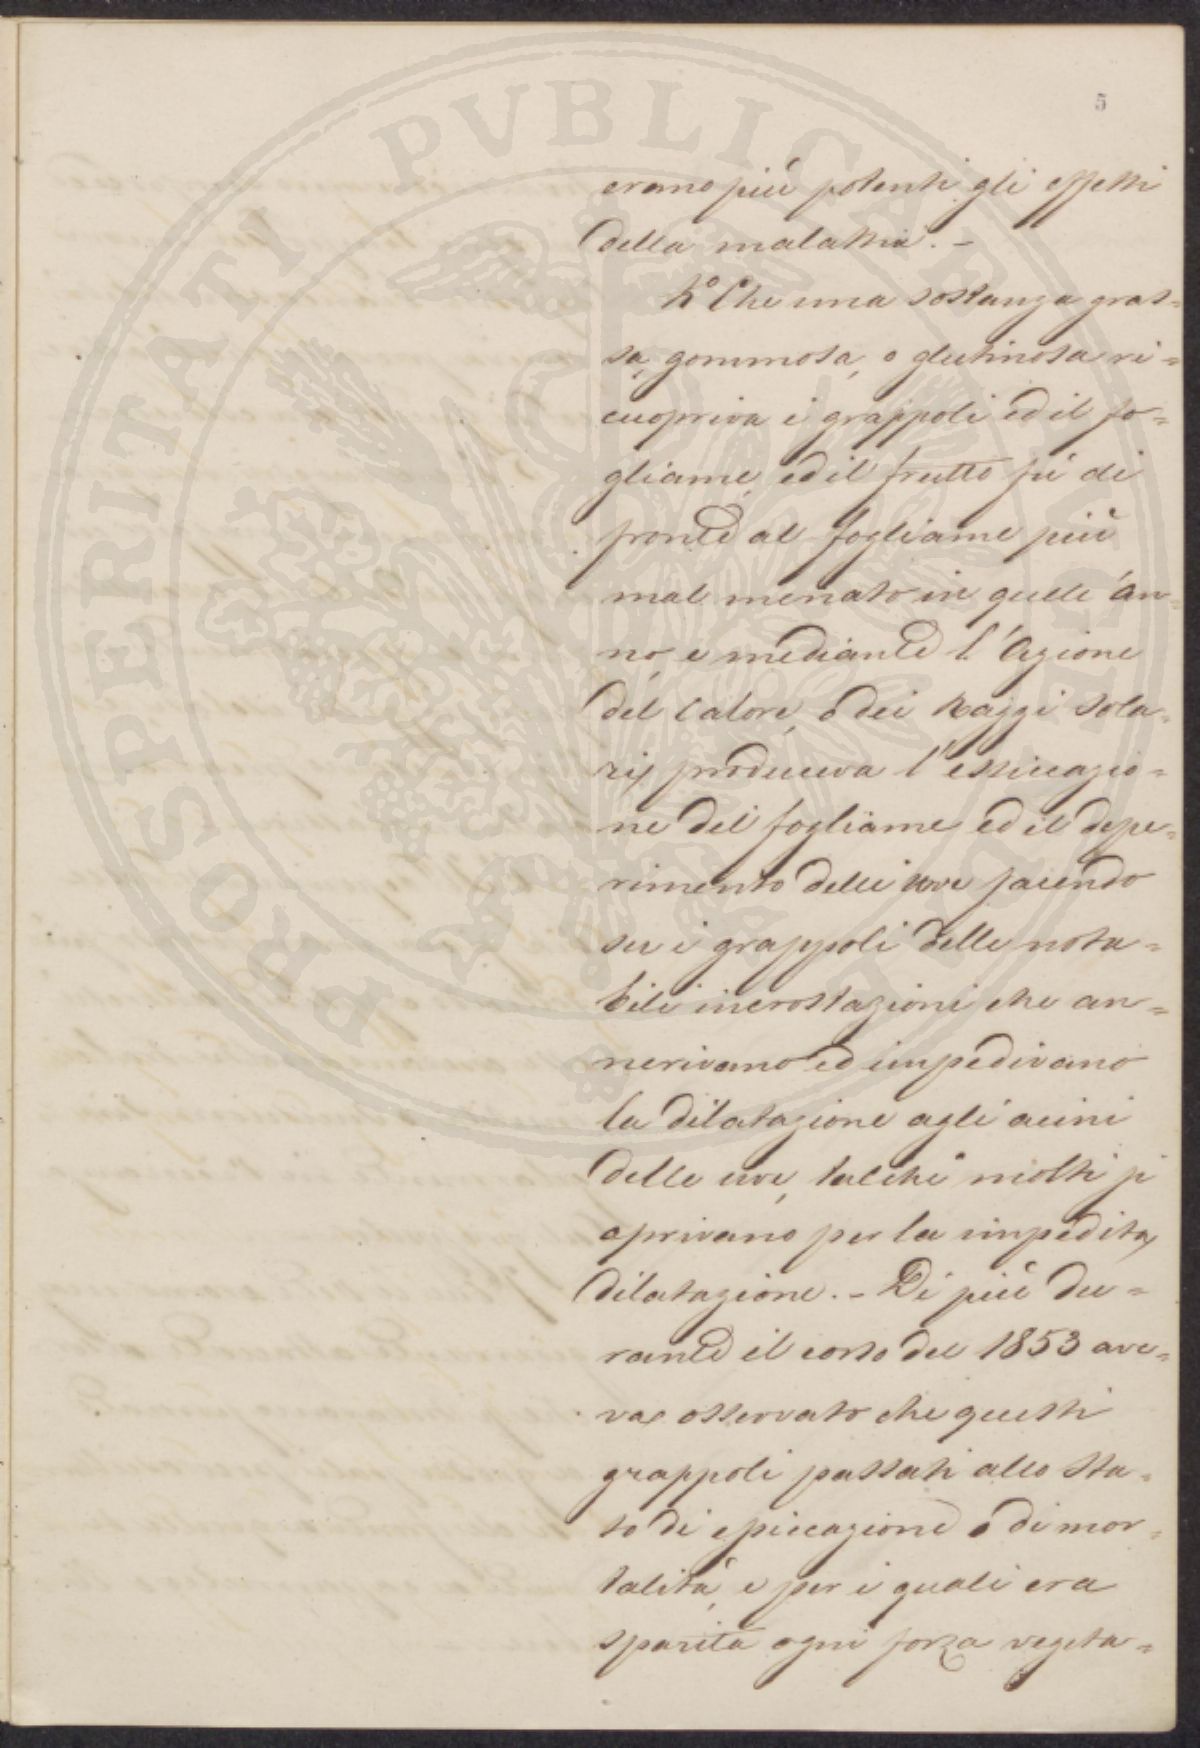 5
erano più potenti gli effetti
della malattia. -
4° Che una sostanza gras=
sa, gommosa, o glutinosa ri=
cuopriva i grappoli ed il fo=
gliame, ed il frutto fù di
fronte al fogliame più
mal menato in quell'an=
no, e mediante l'Azione
del calore, o dei Raggi sola=
ri, produceva l'essiccazio=
ne del fogliame, ed il depe=
rimento delle uve facendo
su i grappoli delle nota=
bili incrostazioni che an=
nerivano ed impedivano
la dilatazione agli acini
delle uve, talchè molti si
aprivano per la impedita
dilatazione. - Di più du=
rante il corso del 1853 ave=
va osservato che questi
grappoli passati allo sta=
to di essiccazione o di mor=
talità, e per i quali era
sparita ogni forza vegeta=
PROSPERITATI PVBLICAE AVGENDAE